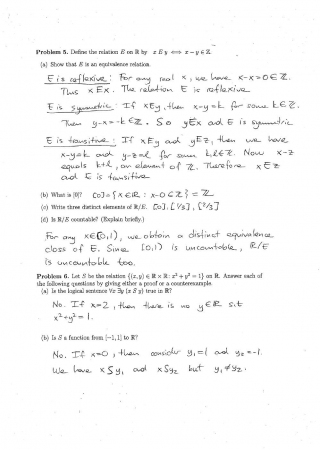 Problem 5. Define the relation E on ℝ by x E y ⟺ x − y ∈ ℤ.
(a) Show that E is an equivalence relation.
E is reflexive: For any real x, we have x-x=0∈ℤ.
Thus xEx. The relation E is reflexive
E is symmetric: If xEy, then x-y=k for some k∈ℤ.
Then y-x=-k∈ℤ. So yEx and E is symmetric
E is transitive: If xEy and yEz, then we have
x-y=k and y-z=l for some k,l∈ℤ. Now x-z
equals k+l, an element of ℤ. Therefore xEz
and E is transitive
(b) What is [0]? [0]={x∈ℝ : x-0∈ℤ} = ℤ
(c) Write three distinct elements of ℝ/E. [0], [1/3], [2/3]
(d) Is ℝ/E countable? (Explain briefly.)
For any x∈[0,1), we obtain a distinct equivalence
class of E. Since [0,1) is uncountable, ℝ/E
is uncountable too.
Problem 6. Let S be the relation {(x, y) ∈ ℝ × ℝ : x² + y² = 1} on ℝ. Answer each of
the following questions by giving either a proof or a counterexample.
(a) Is the logical sentence ∀x ∃y (x S y) true in ℝ?
No. If x=2, then there is no y∈ℝ s.t
x²+y²=1.
(b) Is S a function from [−1, 1] to ℝ?
No. If x=0, then consider y₁=1 and y₂=-1.
We have xSy₁ and xSy₂ but y₁≠y₂.